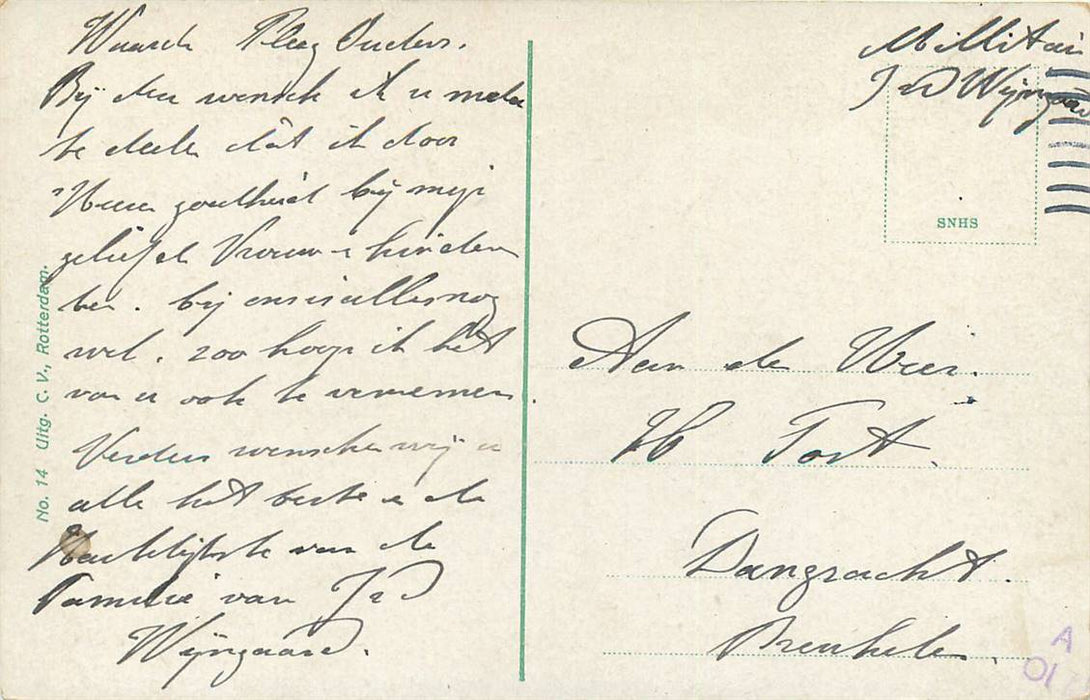 Waarde Pleeg Ouders.
Bij deze wensch ik u mede
te deelen dat ik door
Uwen goedheid bij mijn
geliefde Vrouw & kinderen
ben. bij ons is alles nog
wel. zoo hoop ik het
van u ook te vernemen.
Verders wenschen wij u
alle het beste & de
Hartelijkste van de
Familie van J v D
Wijngaard.
No. 14 Uitg. C. V., Rotterdam.
Millitair
J v D Wijngaard
SNHS
Aan den Heer.
H Fort.
Dangracht.
Breukelen.
A
01